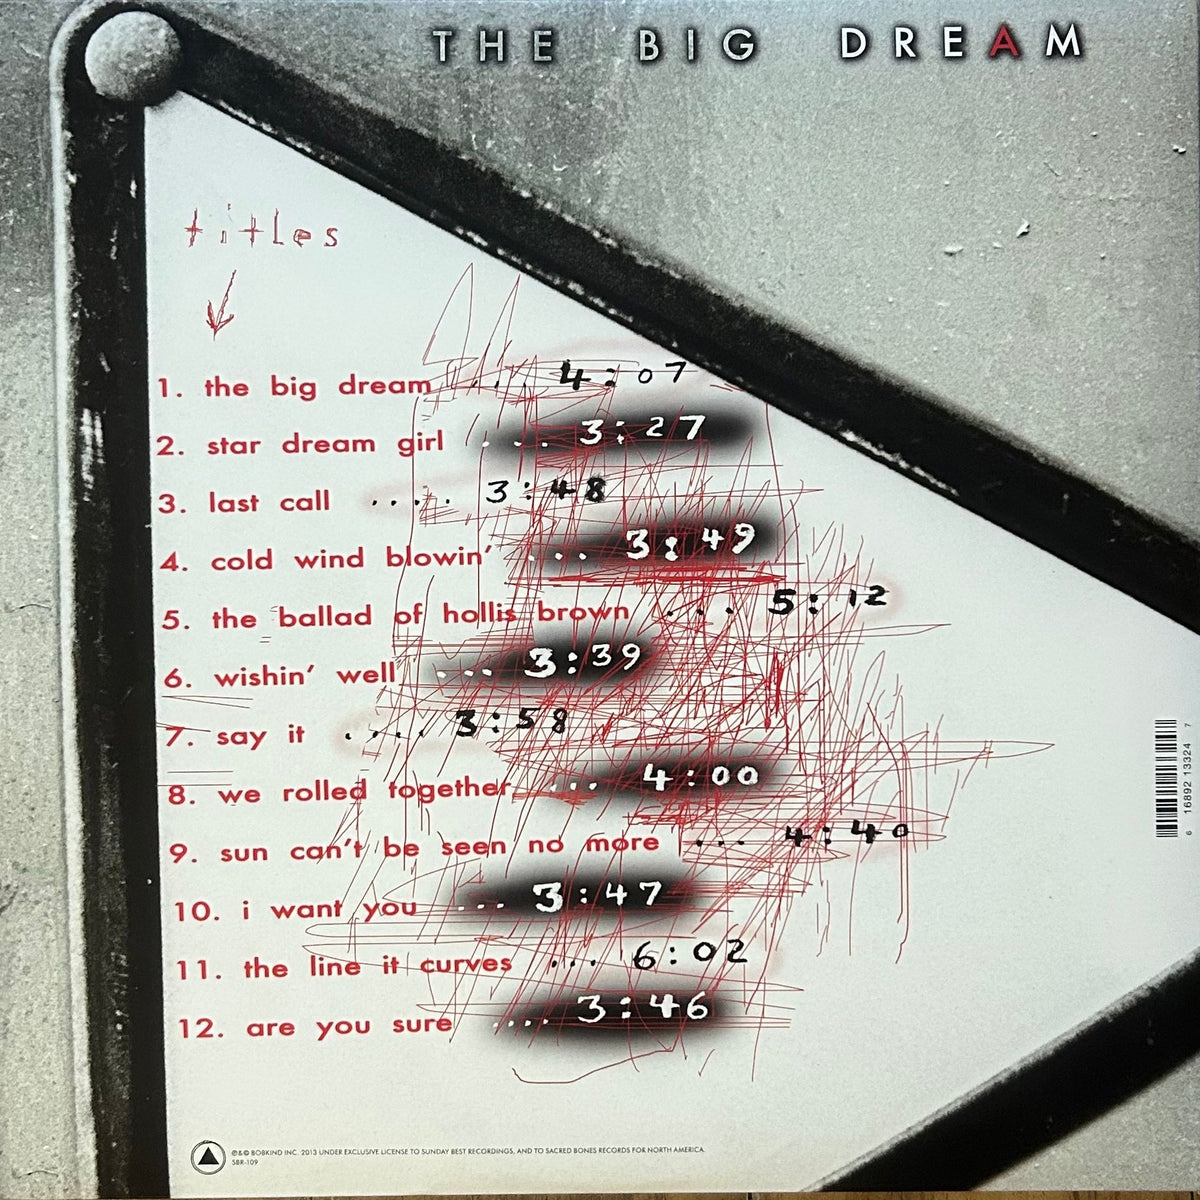 THE BIG DREAM
titles
1. the big dream .... 4:07
2. star dream girl .... 3:27
3. last call .... 3:48
4. cold wind blowin' ... 3:49
5. the ballad of hollis brown ... 5:12
6. wishin' well ... 3:39
7. say it .... 3:58
8. we rolled together ... 4:00
9. sun can't be seen no more ... 4:40
10. i want you ... 3:47
11. the line it curves ... 6:02
12. are you sure .... 3:46
6 16892 13324 7
℗&© BOBKIND INC. 2013 UNDER EXCLUSIVE LICENSE TO SUNDAY BEST RECORDINGS, AND TO SACRED BONES RECORDS FOR NORTH AMERICA.
SBR-109